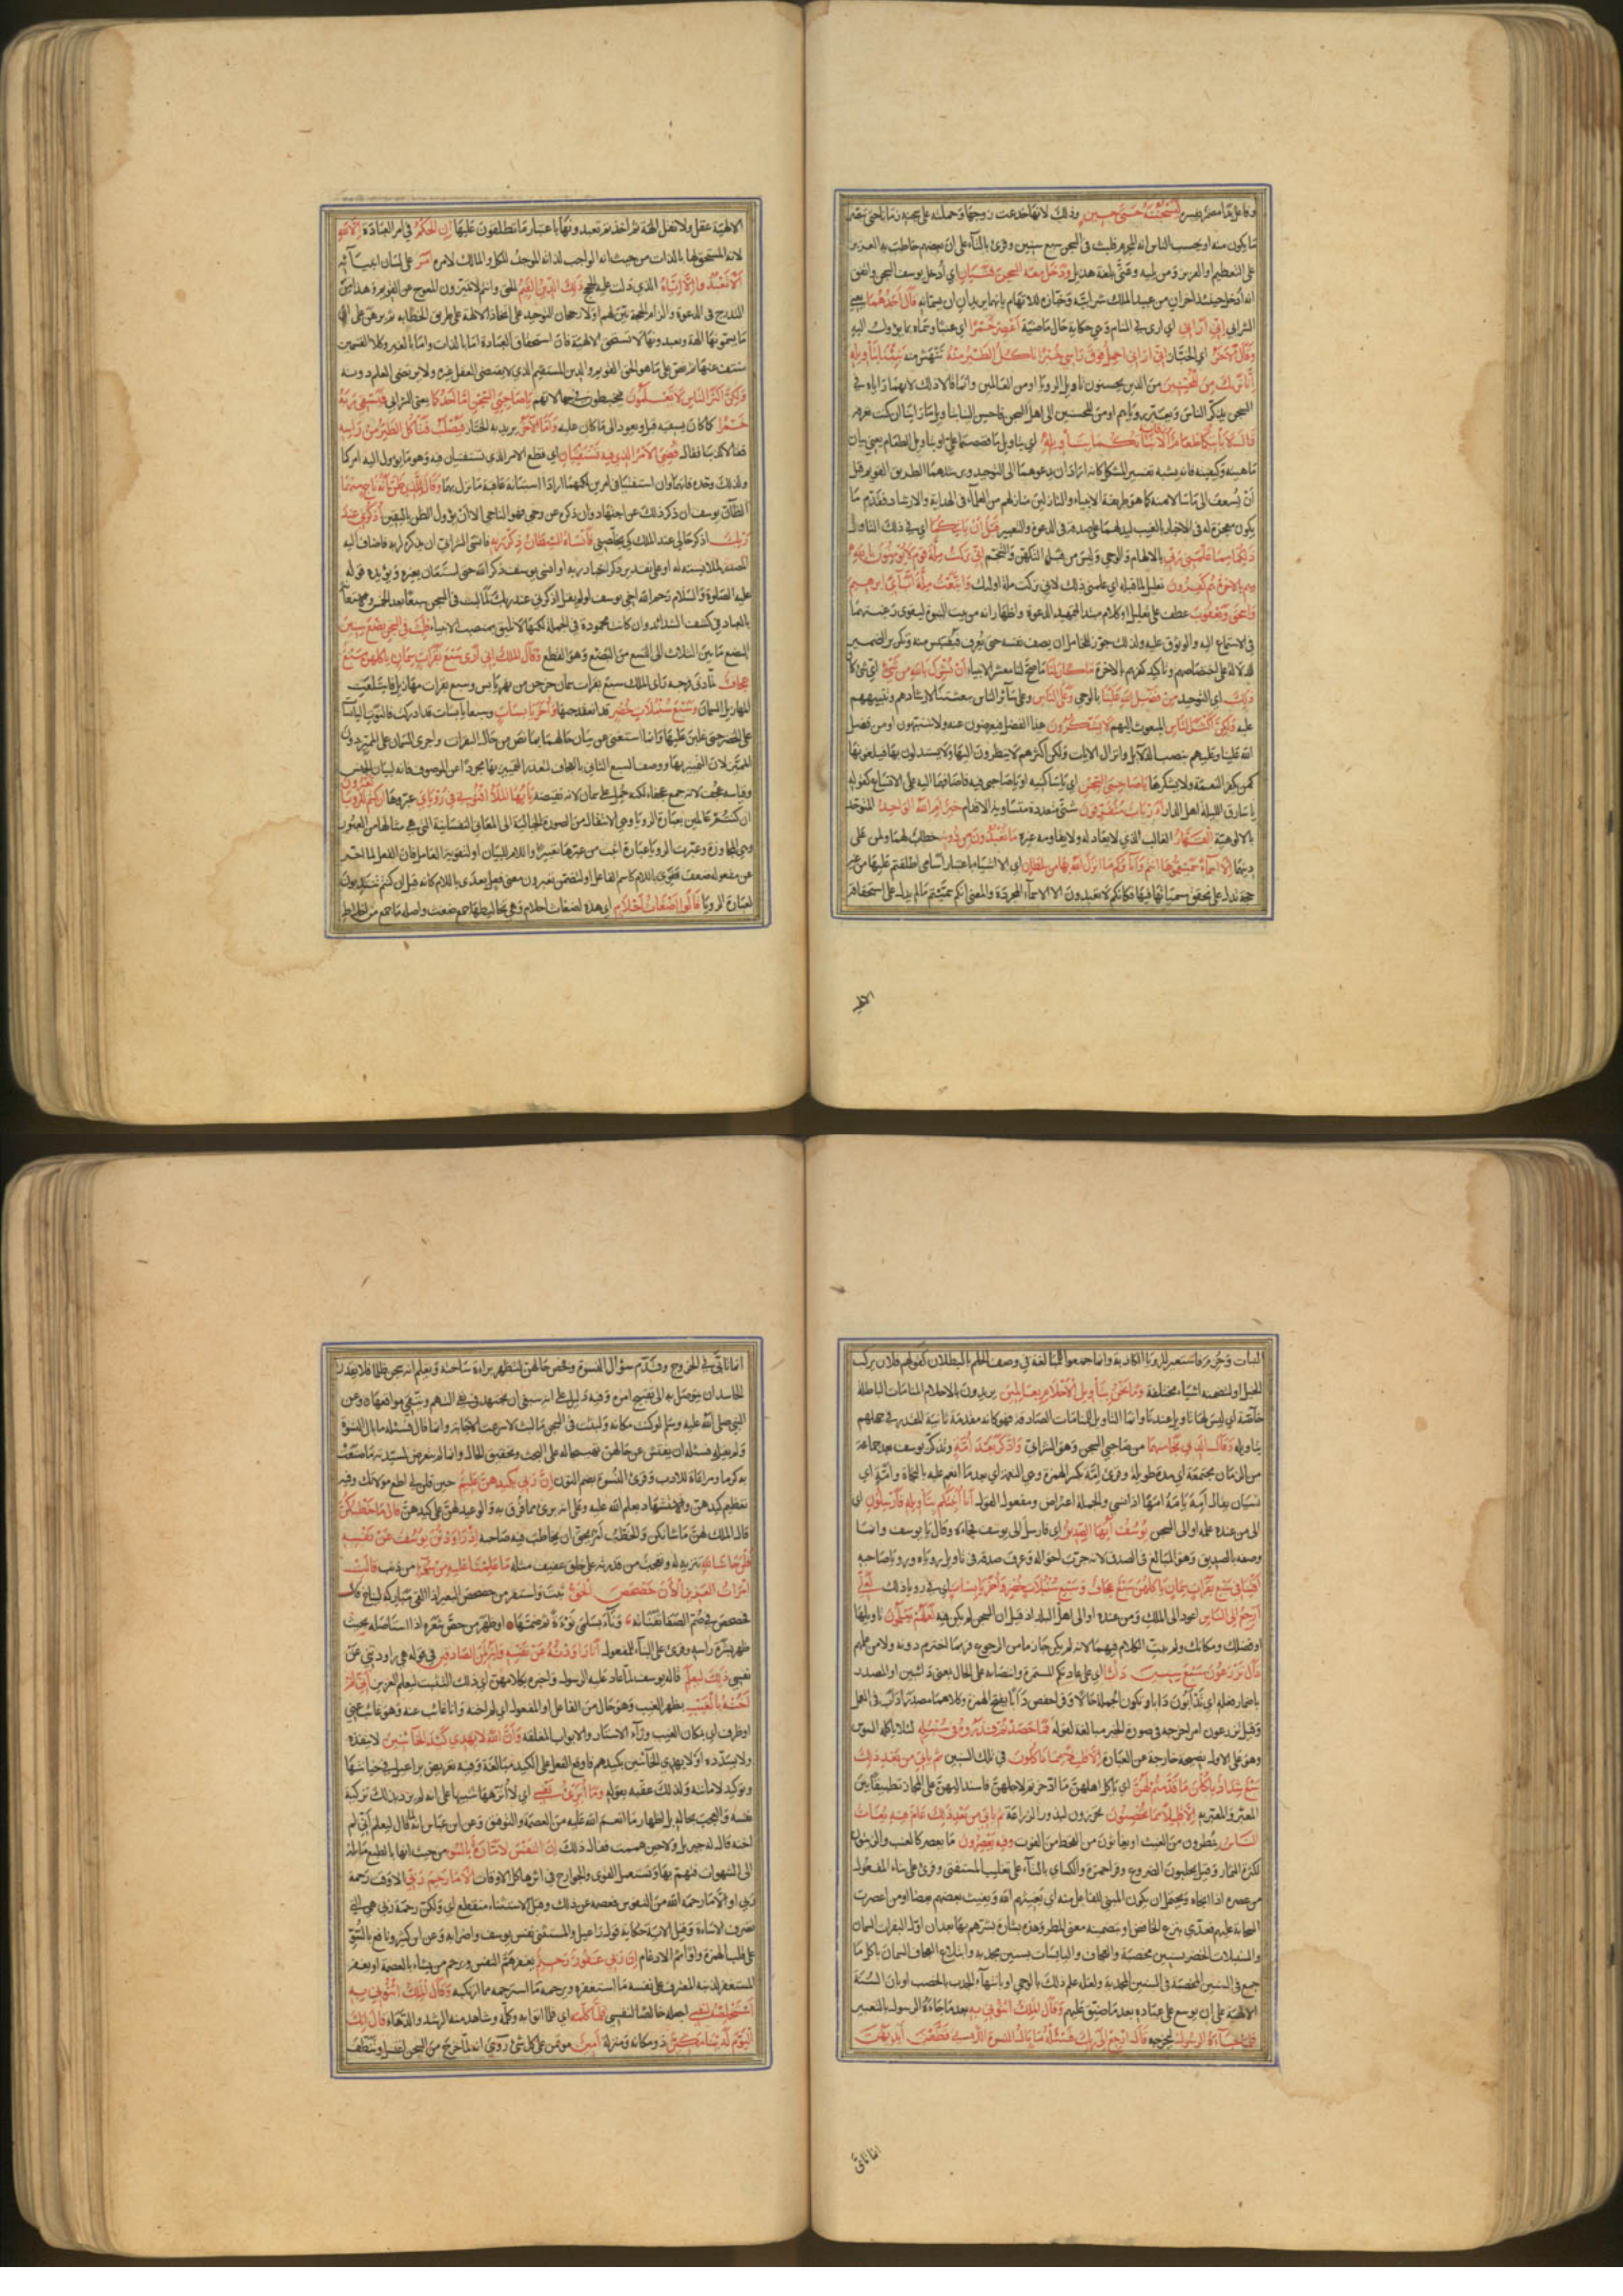 وفاعله مضمر يفسره ليسجننه حتى حين وذلك لانها خدعت زوجها وحملته على سجنه زمانا حتى تبصر
ما يكون منه او يحسب الناس انه المجرم فلبث في السجن سبع سنين وقرئ بالتاء على ان بعضهم خاطب به العزيز
على التعظيم او العزيز ومن يليه وعتى بلغة هذيل ودخل معه السجن فتيان اي ادخل يوسف السجن واتفق
انه ادخل حينئذ اخران من عبيد الملك شرابيه وخبازه للاتهام بانهما يريدان ان يسمانه قال احدهما يعني
الشرابي اني اراني اي ارى في المنام وهي حكاية حال ماضية اعصر خمرا اي عنبا وسماه بما يؤول اليه
وقال الآخر اي الخباز اني اراني احمل فوق راسي خبزا تاكل الطير منه تنهش منه نبئنا بتأويله
انا نراك من المحسنين من الذين يحسنون تاويل الرويا او من العالمين وانما قالا ذلك لانهما راياه في
السجن يذكر الناس ويعبر رؤياهم او من المحسنين الى اهل السجن فاحسن الينا بتاويل ما راينا ان كنت تعرفه
قال لا ياتيكما طعام ترزقانه الا نبأتكما بتأويله اي بتاويل ما قصصتما علي او بتاويل الطعام يعني بيان
ماهيته وكيفيته فانه يشبه تفسير المشكل كانه اراد ان يدعوهما الى التوحيد ويرشدهما الطريق القويم قبل
ان يسعف الى ما سالاه منه كما هو طريقة الانبياء والنازلين منازلهم من العلماء في الهداية والارشاد فقدم ما
يكون معجزة له في الاخبار بالغيب ليدلهما على صدقه في الدعوة والتعبير قبل ان ياتيكما اي في ذلك التاويل
ذلكما مما علمني ربي بالالهام والوحي وليس من قبيل التكهن والتنجم اني تركت ملة قوم لا يؤمنون بالله
وهم بالاخرة هم كافرون تعليل لما قبله اي علمني ذلك لاني تركت ملة اولئك واتبعت ملة آبائي ابرهيم
واسحق ويعقوب عطف على تعليل او كلام مبتدأ لتمهيد الدعوة واظهار انه من بيت النبوة ليقوى رغبتهما
في الاستماع اليه والوثوق عليه ولذلك جوز للخامل ان يصف نفسه حتى يعرف فيقتبس منه وتكرير الضمير
للدلالة على اختصاصهم وتاكيد كفرهم بالاخرة ما كان لنا ما صح لنا معشر الانبياء ان نشرك بالله من شئ اي شئ كان
ذلك اي التوحيد من فضل الله علينا بالوحي وعلى الناس وعلى سائر الناس ببعثتنا لارشادهم وتنبيههم
عليه ولكن اكثر الناس المبعوث اليهم لا يشكرون هذا الفضل فيعرضون عنه ولا يتنبهون او من فضل
الله علينا وعليهم بنصب الدلائل وانزال الايات ولكن اكثرهم لا ينظرون اليها ولا يستدلون بها فيلغونها
كمن يكفر النعمة ولا يشكرها يا صاحبي السجن اي يا ساكنيه او يا صاحبي فيه فاضافهما اليه على الاتساع كقوله
يا سارق الليلة اهل الدار ءارباب متفرقون شتى متعددة متساوية الاقدام خير ام الله الواحد المتوحد
بالالوهية القهار الغالب الذي لا يعادله ولا يقاومه غيره ما تعبدون من دونه خطاب لهما ولمن على
دينهما الا اسماء سميتموها انتم وآباؤكم ما انزل الله بها من سلطان اي الا اشياء باعتبار اسامي اطلقتم عليها من غير
حجة تدل على تحقق مسمياتها فيها فكانكم لا تعبدون الا الاسماء المجردة والمعنى انكم سميتم ما لم يدل على استحقاقه
الالـ
الالهية عقل ولا نقل الهة ثم اخذتم تعبدونها باعتبار ما تطلقون عليها ان الحكم في امر العبادة الا لله
لانه المستحق لها بالذات من حيث انه الواجب لذاته الموجد للكل والمالك لامره امر على لسان انبيائه
الا تعبدوا الا اياه الذي دلت عليه الحجج ذلك الدين القيم الحق وانتم لا تميزون المعوج عن القويم وهذا من
التدرج في الدعوة والزام الحجة بين لهم اولا رجحان التوحيد على اتخاذ الالهة على طريق الخطابة ثم برهن على ان
ما يسمونها الهة ويعبدونها لا تستحق الالهية فان استحقاق العبادة اما بالذات واما بالغير وكلا القسمين
منتف عنها ثم نص على ما هو الحق القويم والدين المستقيم الذي لا يقتضي العقل غيره ولا يرتضي العلم دونه
ولكن اكثر الناس لا يعلمون فيخبطون في جهالاتهم يا صاحبي السجن اما احدكما يعني الشرابي فيسقي ربه
خمرا كما كان يسقيه قبل ويعود الى ما كان عليه واما الآخر يريد به الخباز فيصلب فتاكل الطير من راسه
فقالا كذبنا فقال قضي الامر الذي فيه تستفتيان اي قطع الامر الذي تستفتيان فيه وهو ما يؤول اليه امركما
ولذلك وحده فانهما وان استفتيا في امرين لكنهما ارادا استبانة عاقبة ما نزل بهما وقال للذي ظن انه ناج منهما
الظان يوسف ان ذكر ذلك عن اجتهاد وان ذكره عن وحي فهو الناجي الا ان يؤول الظن باليقين اذكرني عند
ربك اذكر حالي عند الملك كي يخلصني فانساه الشيطان ذكر ربه فانسى الشرابي ان يذكره لربه فاضاف اليه
المصدر لملابسته له او على تقدير ذكر اخبار ربه او انسى يوسف ذكر الله حتى استعان بغيره ويؤيده قوله
عليه الصلوة والسلام رحم الله اخي يوسف لو لم يقل اذكرني عند ربك لما لبث في السجن سبعا بعد الخمس
بالعباد في كشف الشدائد وان كانت محمودة في الجملة لكنها لا تليق بمنصب الانبياء فلبث في السجن بضع سنين
البضع ما بين الثلاث الى التسع من البضع وهو القطع وقال الملك اني ارى سبع بقرات سمان ياكلهن سبع
عجاف لما دنى فرجه راى الملك سبع بقرات سمان خرجن من نهر يابس وسبع بقرات مهازيل فابتلعت
المهازيل السمان وسبع سنبلات خضر قد انعقد حبها واخر يابسات وسبعا يابسات قد ادركت فالتوت اليابسات
على الخضر حتى غلبن عليها وانما استغنى عن بيان حالها بما نص من حال البقرات واجرى السمان على المميز دون
التمييز لان التمييز بها ووصف السبع الثاني بالعجاف لتعذر التمييز بها مجردا عن الموصوف فانه لبيان الجنس
وقياسه عجف لانه جمع عجفاء لكنه حمل على سمان لانه نقيضه يا ايها الملأ افتوني في رؤياي عبروها ان كنتم للرؤيا تعبرون
ان كنتم عالمين بعبارة الرويا وهي الانتقال من الصورة الخيالية الى المعاني النفسانية التي هي مثالها من العبور
وهي المجاوزة وعبرت الرويا عبارة اثبت من عبرتها تعبيرا واللام للبيان او لتقوية العامل فان الفعل لما اخر
عن مفعوله ضعف فقوي باللام كاسم الفاعل او لتضمن تعبرون معنى فعل يعدى باللام كانه قيل ان كنتم تنتدبون
لعبارة الرويا قالوا اضغاث احلام اي هذه اضغاث احلام وهي تخاليطها جمع ضغث واصله ما جمع من اخلاط
النبات وحزم فاستعير للرويا الكاذبة وانما جمعوا للمبالغة في وصف الحلم بالبطلان كقولهم فلان يركب
الخيل او لتضمنه اشياء مختلفة وما نحن بتأويل الاحلام بعالمين يريدون بالاحلام المنامات الباطلة
خاصة اي ليس لها تاويل عندنا وانما التاويل للمنامات الصادقة فهو كانه مقدمة ثانية للعذر في جهلهم
بتاويله وقال الذي نجا منهما من صاحبي السجن وهو الشرابي وادكر بعد امة وتذكر يوسف بعد جماعة
من الزمان مجتمعة اي مدة طويلة وقرئ امة بكسر الهمزة وهي النعمة اي بعد ما انعم عليه بالنجاة وامه اي
نسيان يقال امه يامه امها اذا نسي والجملة اعتراض ومفعول القول انا انبئكم بتأويله فارسلون اي
الى من عنده علمه او الى السجن يوسف ايها الصديق اي فارسل الى يوسف فجاءه وقال يا يوسف وانما
وصفه بالصديق وهو المبالغ في الصدق لانه جرب احواله وعرف صدقه في تاويل رؤياه ورويا صاحبه
افتنا في سبع بقرات سمان ياكلهن سبع عجاف وسبع سنبلات خضر واخر يابسات اي في رويا ذلك لعلي
ارجع الى الناس اعود الى الملك ومن عنده او الى اهل البلد اذ قيل ان السجن لم يكن فيه لعلهم يعلمون تاويلها
او فضلك ومكانك ولم يبت الكلام فيهما لانه لم يكن جازما من الرجوع فربما اخترم دونه ولا من علمهم
قال تزرعون سبع سنين دأبا اي على عادتكم المستمرة وانتصابه على الحال بمعنى دائبين او المصدر
باضمار فعله اي تدأبون دابا وتكون الجملة حالا وقرا حفص دأبا بفتح الهمزة وكلاهما مصدر دأب في العمل
وقيل تزرعون امر اخرجه في صورة الخبر مبالغة لقوله فما حصدتم فذروه في سنبله لئلا ياكله السوس
وهو على الاول نصيحة خارجة عن العبارة الا قليلا مما تاكلون في تلك السنين ثم ياتي من بعد ذلك
سبع شداد ياكلن ما قدمتم لهن اي ياكل اهلهن ما ادخرتم لاجلهن فاسند اليهن على المجاز تطبيقا بين
المعبر والمعبر به الا قليلا مما تحصنون تحرزون لبذور الزراعة ثم ياتي من بعد ذلك عام فيه يغاث
الناس يمطرون من الغيث او يغاثون من القحط من الغوث وفيه يعصرون ما يعصر كالعنب والزيتون
لكثرة الثمار وقيل يحلبون الضروع وقرا حمزة والكسائي بالتاء على تغليب المستفتي وقرئ على بناء المفعول
من عصره اذا انجاه ويحتمل ان يكون المبني للفاعل منه اي يغيثهم الله ويغيث بعضهم بعضا او من اعصرت
السحابة عليهم فعدي بنزع الخافض او بتضمينه معنى المطر وهذه بشارة بشرهم بها بعد ان اول البقرات السمان
والسنبلات الخضر بسنين مخصبة والعجاف واليابسات بسنين مجدبة وابتلاع العجاف السمان باكل ما
جمع في السنين المخصبة في السنين المجدبة ولعله علم ذلك بالوحي او بانتهاء الجدب بالخصب او بان السنة
الالهية على ان يوسع على عباده بعد ما ضيق عليهم وقال الملك ائتوني به بعد ما جاءه الرسول بالتعبير
فلما جاءه الرسول ليخرجه قال ارجع الى ربك فسئله ما بال النسوة اللاتي قطعن ايديهن
انما تأنى
انما تانى في الخروج وقدم سؤال النسوة وفحص حالهن لتظهر براءة ساحته ويعلم انه سجن ظلما فلا يقدر
الحاسد ان يتوصل به الى تقبيح امره وفيه دليل على انه ينبغي ان يجتهد في نفي التهم ويتقي مواقعها وعن
النبي صلى الله عليه وسلم لو كنت مكانه ولبثت في السجن ما لبث لاسرعت الاجابة وانما قال فسئله ما بال النسوة
ولم يقل فسئله ان يفتش عن حالهن تهييجا له على البحث وتحقيق الحال وانما لم يتعرض لسيدته مع ما صنعت
به كرما ومراعاة للادب وقرئ النسوة بضم النون ان ربي بكيدهن عليم حين قلن لي اطع مولاتك وفيه
تعظيم كيدهن والاستشهاد بعلم الله عليه وعلى انه برئ مما قرف به والوعيد لهن على كيدهن قال ما خطبكن
قال الملك لهن ما شانكن والخطب امر يحق ان يخاطب فيه صاحبه اذ راودتن يوسف عن نفسه
قلن حاش لله تنزيه له وتعجب من قدرته على خلق عفيف مثله ما علمنا عليه من سوء من ذنب قالت
امرأت العزيز الآن حصحص الحق ثبت واستقر من حصحص البعير اذا القى مباركه ليناخ قال
فحصحص في صم الصفا ثفناته وناء بسلمى نوءة ثم صمما او ظهر من حص شعره اذا استاصله بحيث
ظهر بشرة راسه وقرئ على البناء للمفعول انا راودته عن نفسه وانه لمن الصادقين في قوله هي راودتني عن
نفسي ذلك ليعلم قاله يوسف لما عاد عليه الرسول واخبره بكلامهن اي ذلك التثبت ليعلم العزيز اني لم
اخنه بالغيب بظهر الغيب وهو حال من الفاعل او المفعول اي لم اخنه وانا غائب عنه وهو غائب عني
او ظرف اي بمكان الغيب وراء الاستار والابواب المغلقة وان الله لا يهدي كيد الخائنين لا ينفذه
ولا يسدده او لا يهدي الخائنين بكيدهم فاوقع الفعل على الكيد مبالغة وفيه تعريض براعيل في خيانتها
وتوكيد لامانته ولذلك عقبه بقوله وما ابرئ نفسي اي لا انزهها تنبيها على انه لم يرد بذلك تزكية
نفسه والعجب بحاله بل اظهار ما انعم الله عليه من العصمة والتوفيق وعن ابن عباس انه لما قال ليعلم اني لم
اخنه قال له جبريل ولا حين هممت فقال ذلك ان النفس لامارة بالسوء من حيث انها بالطبع مائلة
الى الشهوات فتهم بها وتستعمل القوى والجوارح في اثرها كل الاوقات الا ما رحم ربي الا وقت رحمة
ربي او الا ما رحمه الله من النفوس فعصمه عن ذلك وقيل الاستثناء منقطع اي ولكن رحمة ربي هي التي
تصرف الاساءة وقيل الاية حكاية قول راعيل والمستثنى نفس يوسف واضرابه وعن ابن كثير ونافع بالسو
على قلب الهمزة واوا ثم الادغام ان ربي غفور رحيم يغفر هم النفس ويرحم من يشاء بالعصمة او يغفر
المستغفر لذنبه المعترف على نفسه ما استغفره ويرحمه ما استرحمه مما ارتكبه وقال الملك ائتوني به
استخلصه لنفسي اجعله خالصا لنفسي فلما كلمه اي فلما اتوا به وكلمه وشاهد منه الرشد والدهاء قال انك
اليوم لدينا مكين ذو مكانة ومنزلة امين مؤتمن على كل شئ روي انه لما خرج من السجن اغتسل وتنظف